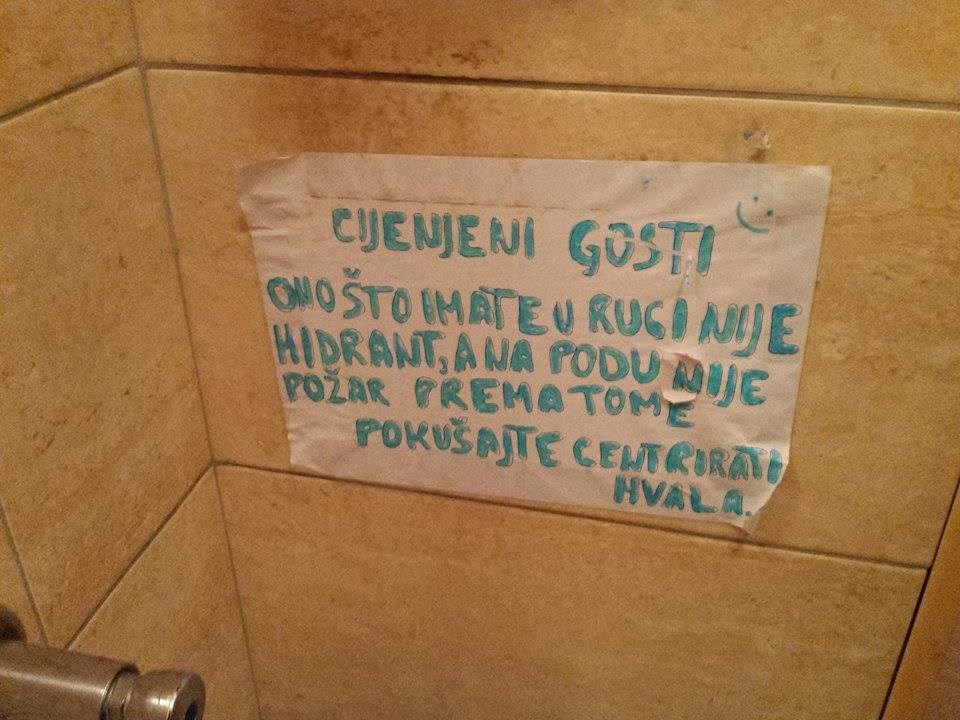 CIJENJENI GOSTI
ONO ŠTO IMATE U RUCI NIJE
HIDRANT, A NA PODU NIJE
POŽAR PREMA TOME
POKUŠAJTE CENTRIRATI
HVALA.